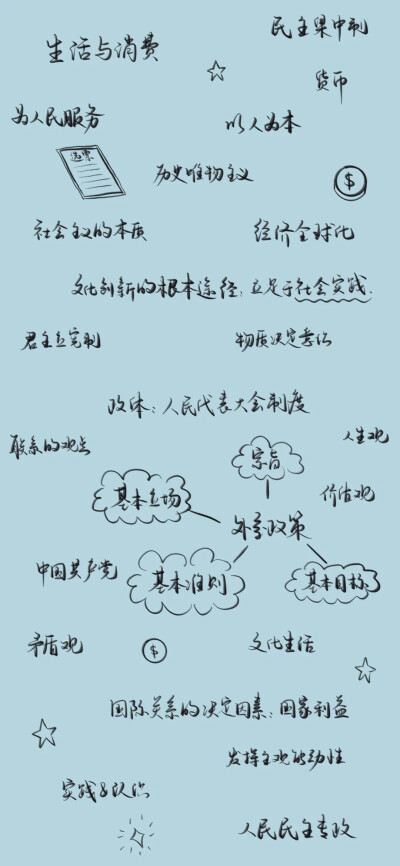 民主集中制
生活与消费
货币
为人民服务
以人为本
选票
历史唯物主义
$
社会主义的本质
经济全球化
文化创新的根本途径:立足于社会实践.
君主立宪制
物质决定意识
政体:人民代表大会制度
联系的观点
人生观
宗旨
基本立场
价值观
外交政策
中国共产党
基本准则
基本目标
矛盾观
$
文化生活
国际关系的决定因素:国家利益
发挥主观能动性
实践&认识
人民民主专政